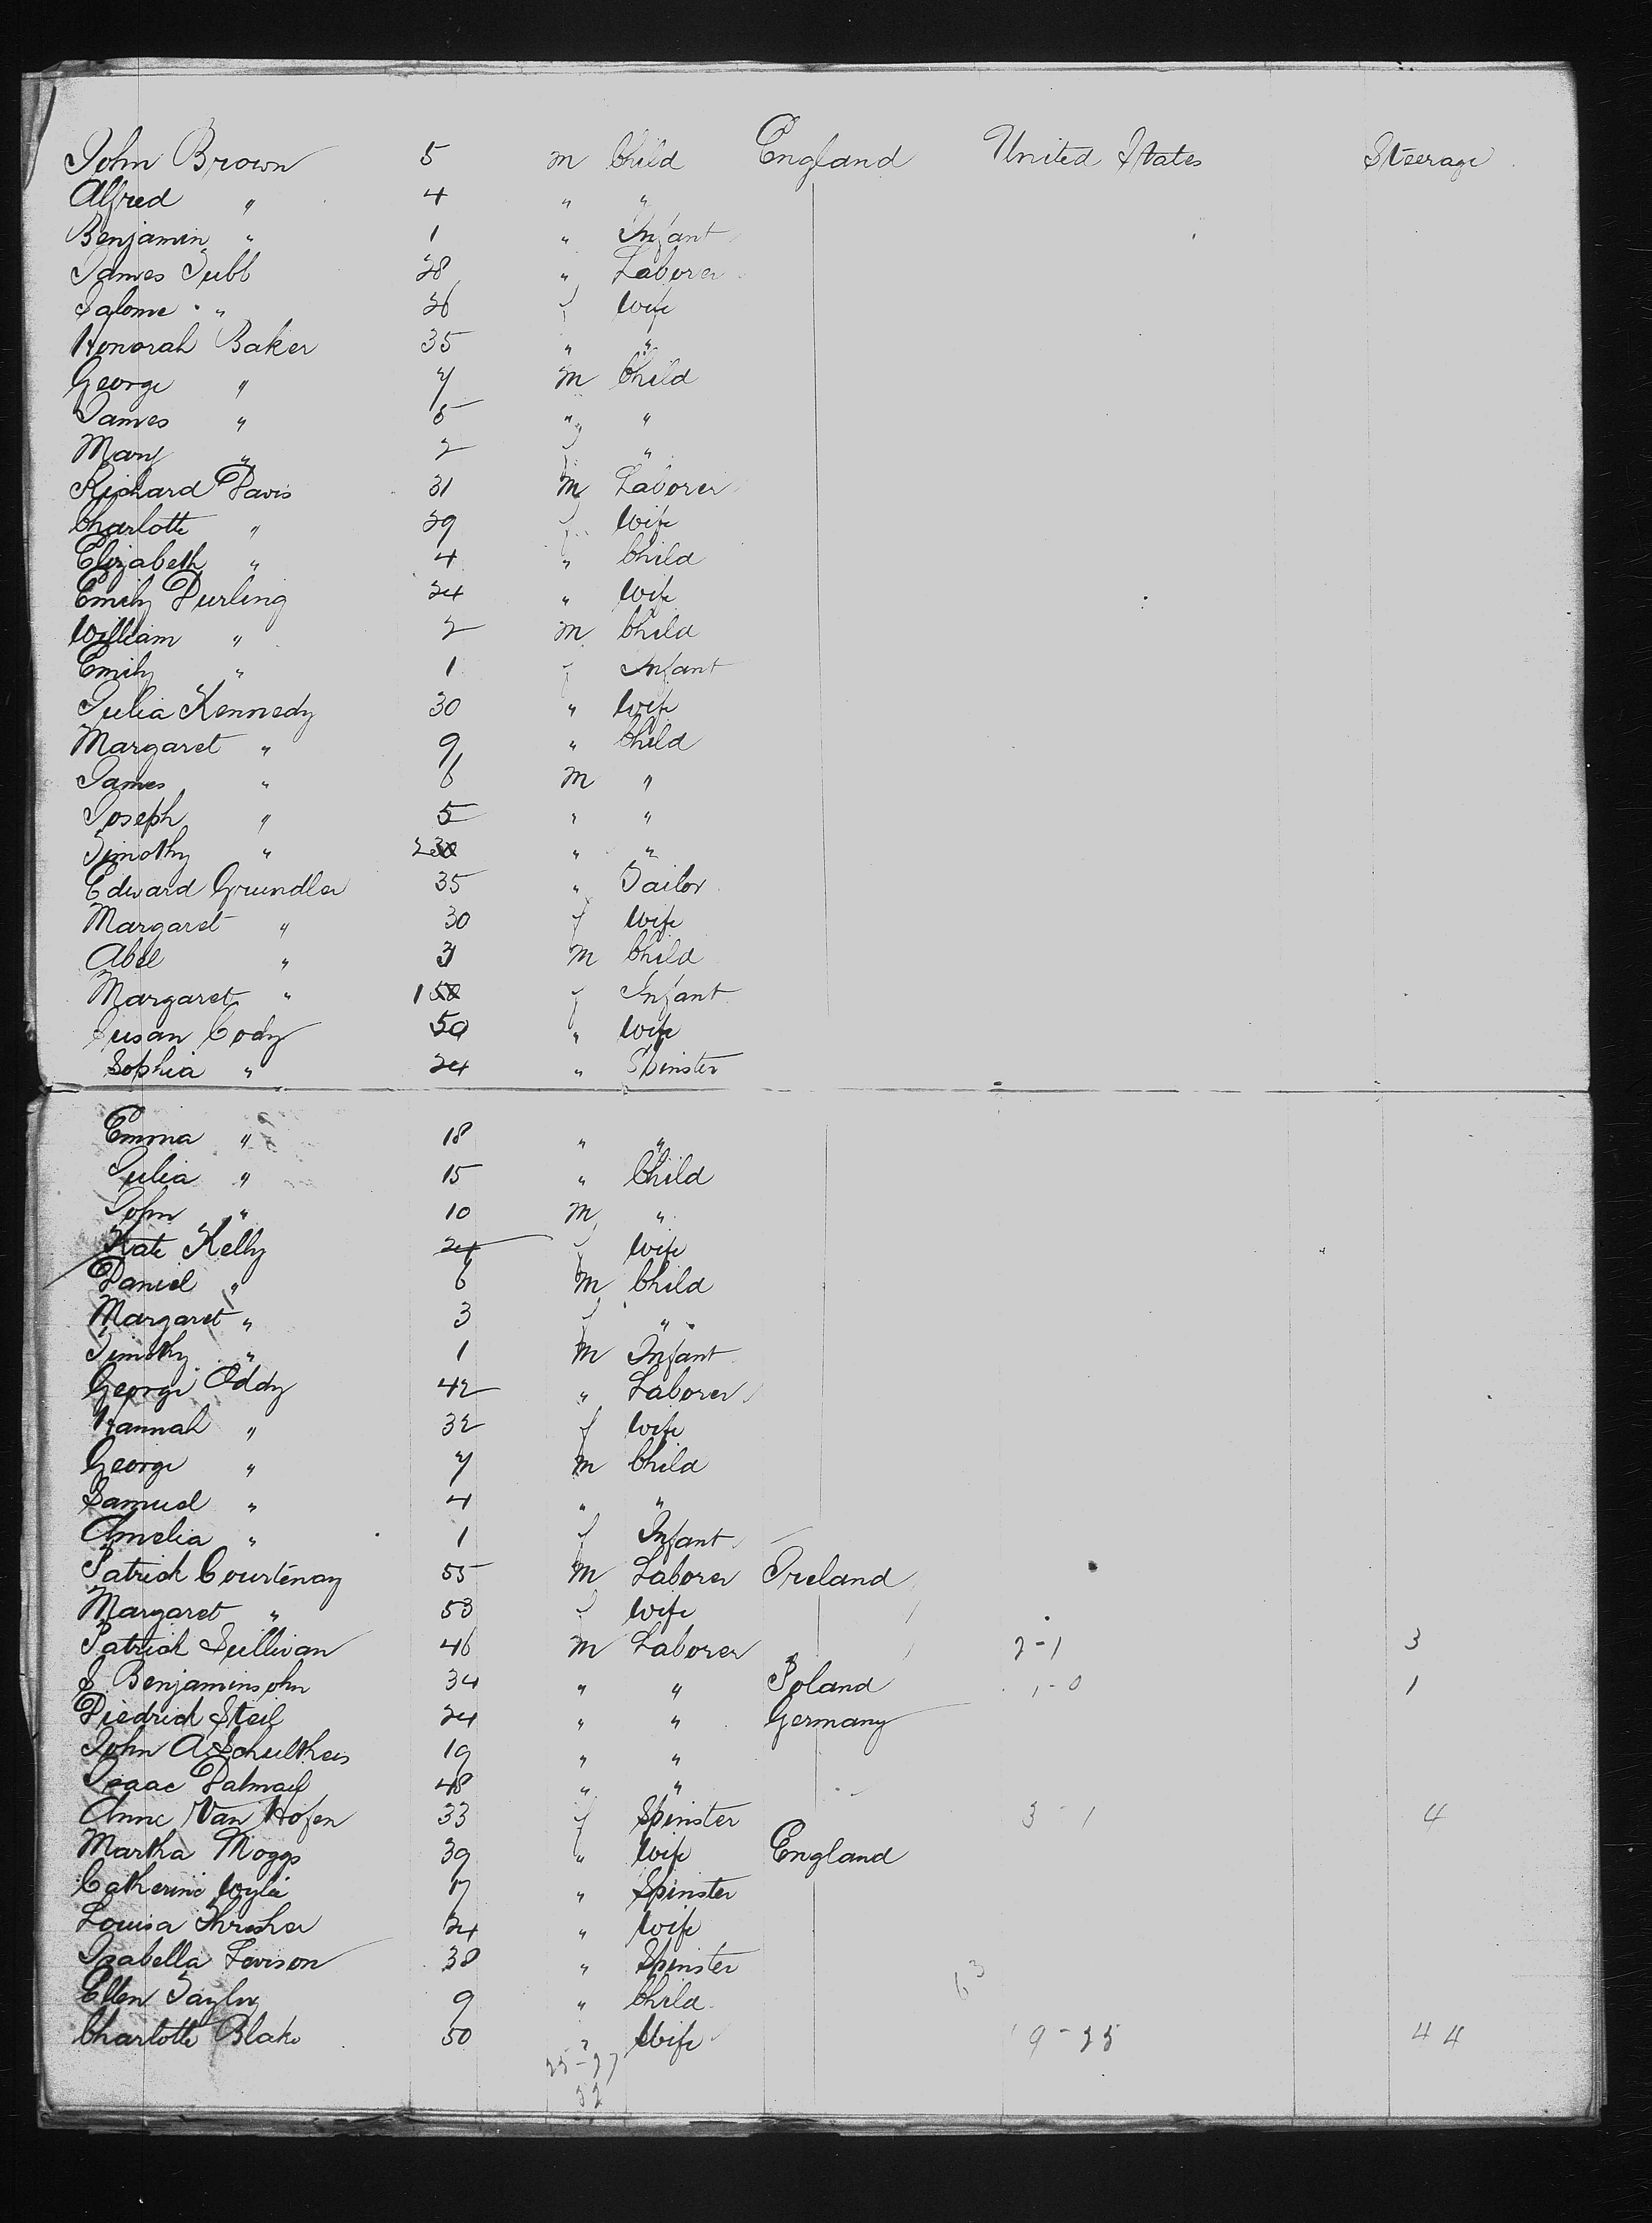 John Brown 5 m Child England United States Steerage
Alfred " 4 " "
Benjamin " 1 " Infant
James Tubb 28 " Laborer
Salome " 26 f Wife
Honorah Baker 35 " "
George " 7 m Child
James " 5 " "
Mary " 2 f "
Richard Davis 31 m Laborer
Charlotte " 29 f Wife
Elizabeth " 4 " Child
Emily Durling 24 " Wife
William " 2 m Child
Emily " 1 f Infant
Julia Kennedy 30 " Wife
Margaret " 9 " Child
James " 6 m "
Joseph " 5 " "
Timothy " 2 " "
Edward Grundler 35 " Tailor
Margaret " 30 f Wife
Abel " 3 m Child
Margaret " 1 f Infant
Susan Cody 50 " Wife
Sophia " 24 " Spinster
Emma " 18 " "
Julia " 15 " Child
John " 10 m "
Kate Kelly 24 f Wife
Daniel " 6 m Child
Margaret " 3 f "
Timothy " 1 m Infant
George Oddy 42 " Laborer
Hannah " 32 f Wife
George " 7 m Child
Samuel " 4 " "
Amelia " 1 f Infant
Patrick Courtenay 55 m Laborer Ireland
Margaret " 53 f Wife
Patrick Sullivan 46 m Laborer 2-1 3
S. Benjaminsohn 34 " " Poland 1-0 1
Diedrich Steil 24 " " Germany
John A Schultheis 19 " "
Isaac 48 " "
Anne Van Hofen 33 f Spinster 3-1 4
Martha Moggs 39 " Wife England
Catherine Wylie 17 " Spinster
Louisa Thrasher 24 " Wife
Isabella Levison 38 " Spinster
Ellen Taylor 9 " Child
63
Charlotte Blake 50 " Wife 19-25 44
25-27
52